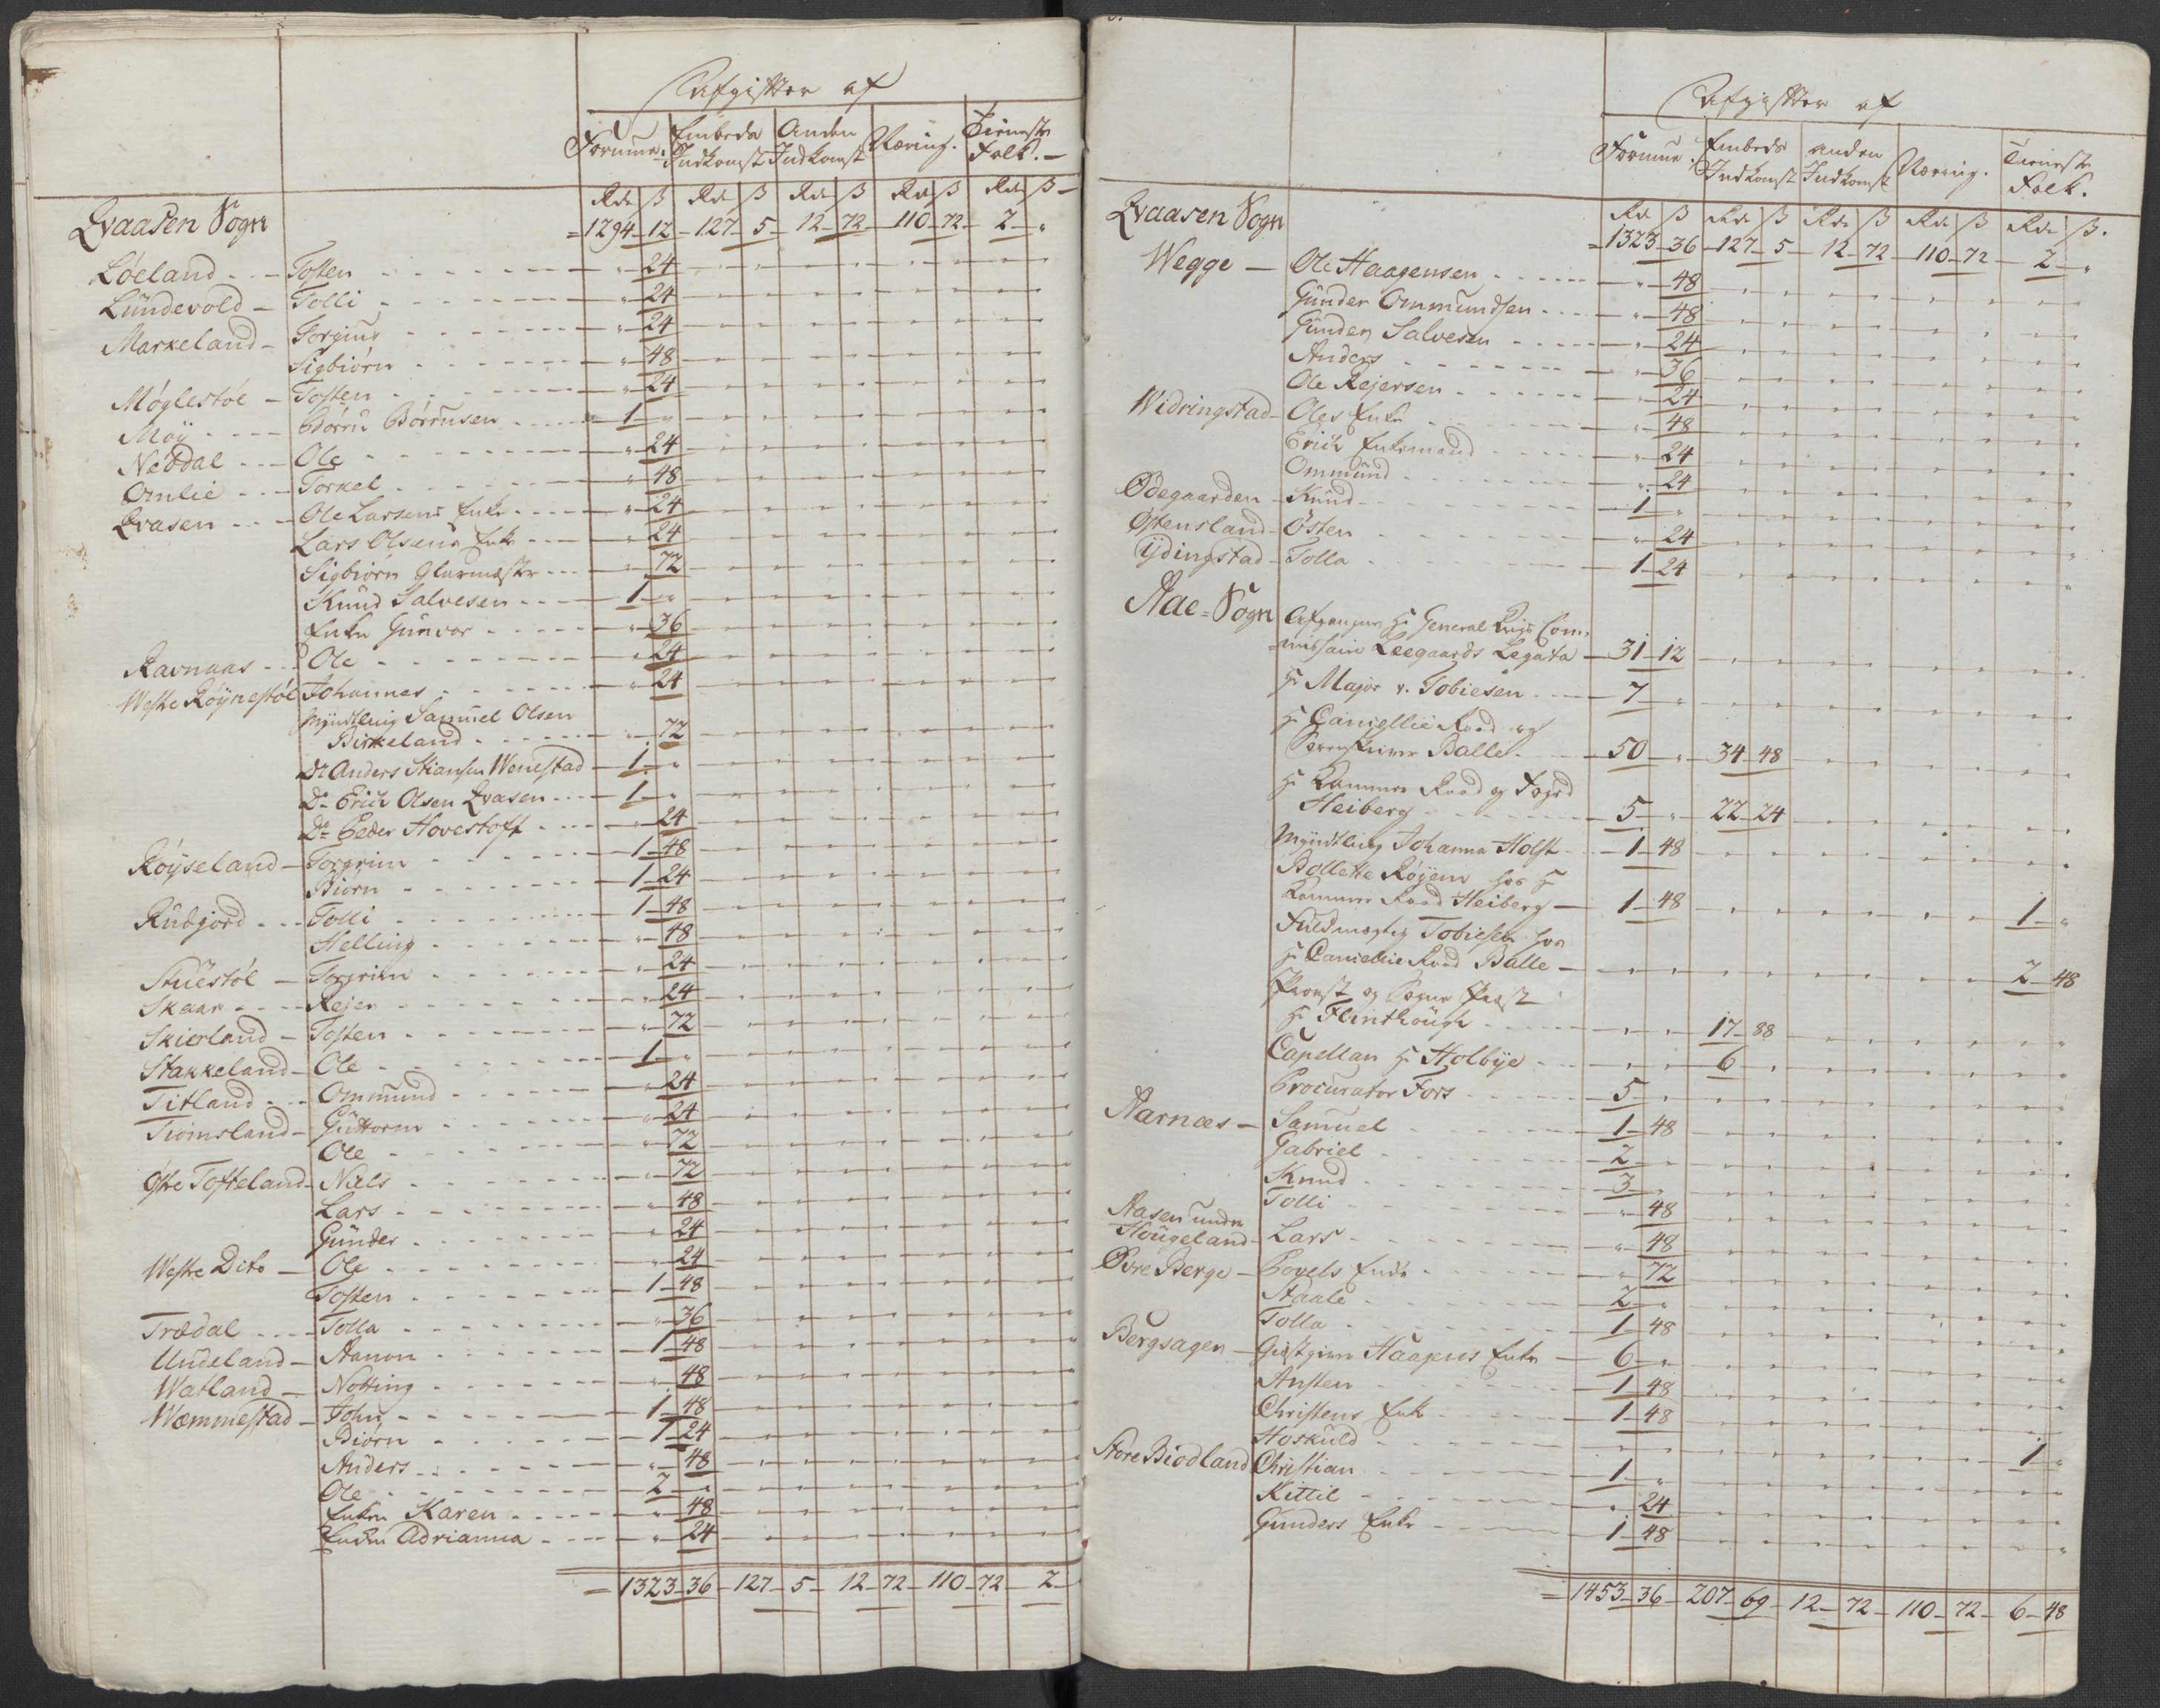 Afgifter af
Formue. Embeds Indkomst Anden Indkomst Næring. Tieneste Folk.
Rd ß Rd ß Rd ß Rd ß Rd ß
Qvaasen Sogn = 1294 - 12 - 127 - 5 - 12 - 72 - 110 - 72 - 2 - "
Løeland - Tosten - " - 24
Lündevold - Tolli - " - 24
Markeland - Torgius - " - 24
Sigbiørn - " - 48
Møglestøl - Tosten - " - 24
Moÿ - Børru Børrusen - 1 - "
Neddal - Ole - " - 24
Omlie - Torkel - " - 48
Qvasen - Ole Larsens Enke - " - 24
Lars Olsens Enke - " - 24
Sigbiørn Glarmester - " - 72
Knud Salvesen - 1 - "
Enke Gunvor - " - 36
Ravnaas - Ole - " - 24
Westre Røÿnestøl Johannes - " - 24
Myndtling Samuel Olsen
Birkeland - " - 72
Do Anders Stiansen Wemestad - 1 - "
Do Erich Olsen Qvasen - 1 - "
Do Peder Hovestoft - " - 24
Røÿseland - Torgrim - 1 - 48
Biørn - 1 - 24
Rudgjord - Tolli - 1 - 48
Helling - " - 48
Stuestøl - Torgrim - " - 24
Skaar - Rejer - " - 24
Skierland - Tosten - " - 72
Stakkeland - Ole - 1 - "
Titland - Ommund - " - 24
Tiomsland - Guttorm - " - 24
Ole - " - 72
Østre Tofteland - Niels - " - 72
Lars - " - 48
Günder - " - 24
Westre Dito - Ole - " - 24
Tosten - 1 - 48
Trædal - Tolla - " - 36
Undeland - Aanon - 1 - 48
Watland - Notting - " - 48
Wæmmestad - John - 1 - 48
Biørn - 1 - 24
Anders - " - 48
Ole - 2 - "
Enken Karen - " - 48
Enken Adrianna - " - 24
= 1323 - 36 - 127 - 5 - 12 - 72 - 110 - 72 - 2 -
Afgifter af
Formue. Embeds Indkomst anden Indkomst Næring. Tieneste Folk.
Rd ß Rd ß Rd ß Rd ß Rd ß.
Qvaasen Sogn = 1323 - 36 - 127 - 5 - 12 - 72 - 110 - 72 - 2 - "
Wegge - Ole Haagensen - " - 48
Günder Ommundsen - " - 48
Günder Salvesen - " - 24
Anders - " - 36
Ole Rejersen - " - 24
Widringstad - Oles Enke - " - 48
Erich Enkemand - " - 24
Ommünd - " - 24
Ødegaarden - Knud - 1 - "
Østensland - Østen - " - 24
Ÿdingstad - Tolla - 1 - 24
Aae-Sogn Afgangne Hr General Krigs Com-
missair Leegaards Legata - 31 - 12
Hr Major v. Tobiesen - 7 - "
Hr Cancellie Raad og
Sorenskriver Balle - 50 - " - 34 - 48
Hr Kammer Raad og Foged
Heiberg - 5 - " - 22 - 24
Myndtling Johanna Holst - 1 - 48
Bollette Røÿem hos Hr
Kammer Raad Heiberg - 1 - 48 - 1 - "
Fuldmægtig Tobiesen hos
Hr Cancellie Raad Balle - 2 - 48
Provst og Sogne Præst
Hr Flinthough - 17 - 88
Capellan Hr Holbÿe - 6 - "
Procurator Fors - 5 - "
Aarnæs - Samuel - 1 - 48
Gabriel - 2 - "
Knud - 3 - "
Tolli - " - 48
Aasen under
Hougeland - Lars - " - 48
Øvre Berge - Povels Enke - " - 72
Staale - 2 - "
Tolla - 1 - 48
Bergsagen - Giestgiver Haagens Enke - 6 - "
Austen - 1 - 48
Christens Enke - 1 - 48
Hoskuld - 1 - "
Store Biodland Christian - 1 - "
Kittil - " - 24
Gunders Enke - 1 - 48
= 1453 - 36 - 207 - 69 - 12 - 72 - 110 - 72 - 6 - 48